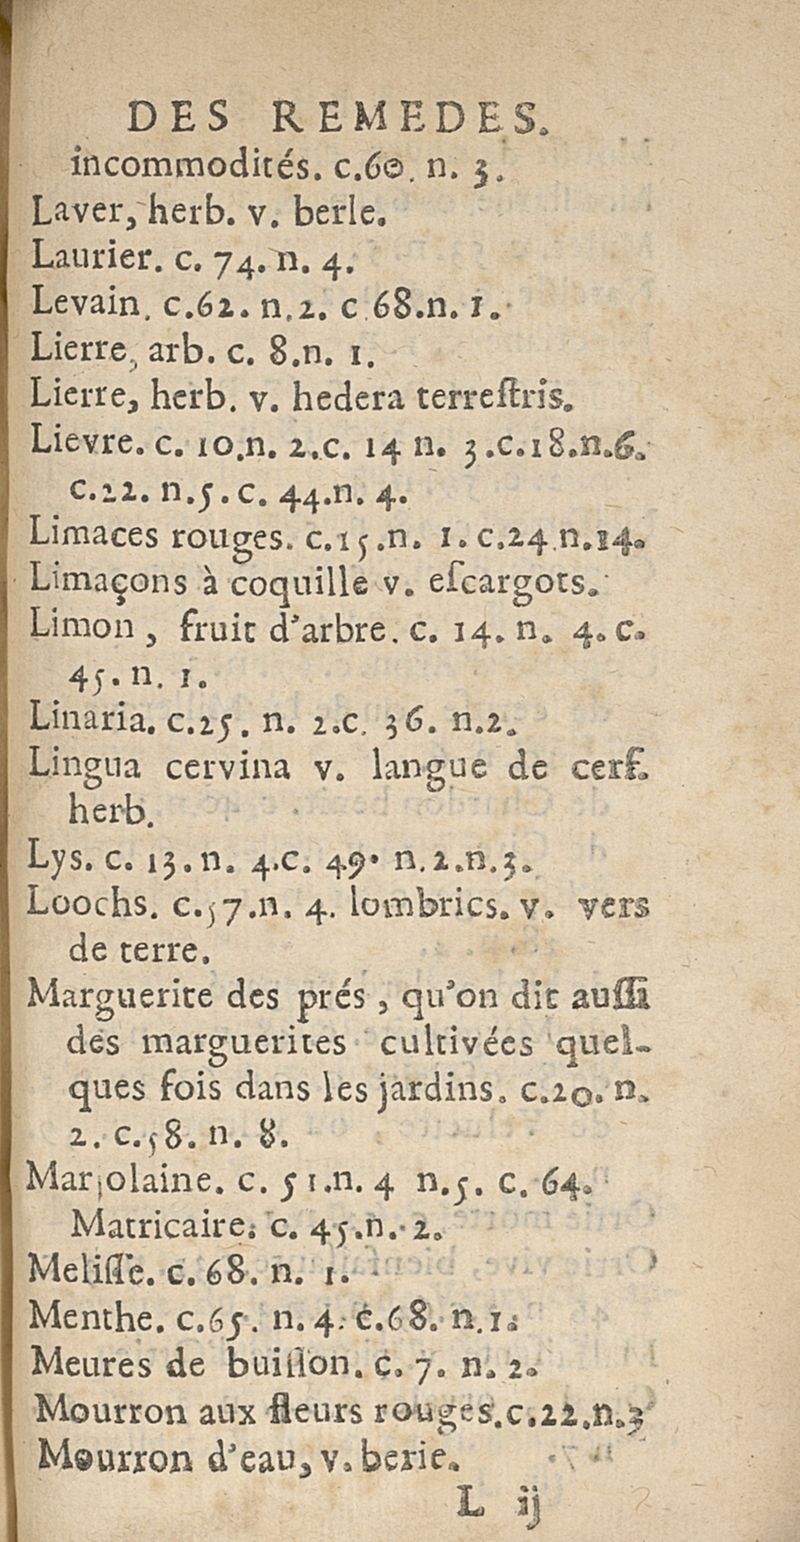 DES REMEDES.
incommodités. c.60. n. 3.
Laver, herb. v. berle.
Laurier. c. 74. n. 4.
Levain. c.62. n.2. c.68.n. 1.
Lierre, arb. c. 8.n. 1.
Lierre, herb. v. hedera terreſtris.
Lievre. c. 10.n. 2.c. 14 n. 3.c.18.n.6.
c.22. n.5. c. 44.n. 4.
Limaces rouges. c.15.n. 1. c.24.n.14.
Limaçons à coquille v. eſcargots.
Limon, fruit d'arbre. c. 14. n. 4. c.
45. n. 1.
Linaria. c.25. n. 2.c. 36. n.2.
Lingua cervina v. langue de cerf.
herb.
Lys. c. 13. n. 4.c. 49. n.2.n.3.
Loochs. c.57.n. 4. lombrics. v. vers
de terre.
Marguerite des prés, qu'on dit auſſi
des marguerites cultivées quel-
ques fois dans les jardins. c.20. n.
2. c.58. n. 8.
Marjolaine. c. 51.n. 4 n.5. c. 64.
Matricaire. c. 45.n. 2.
Meliſſe. c. 68. n. 1.
Menthe. c.65. n. 4. c.68. n.1.
Meures de buiſſon. c. 7. n. 2.
Mourron aux fleurs rouges.c.22.n.3
Mourron d'eau, v. berie.
L ij